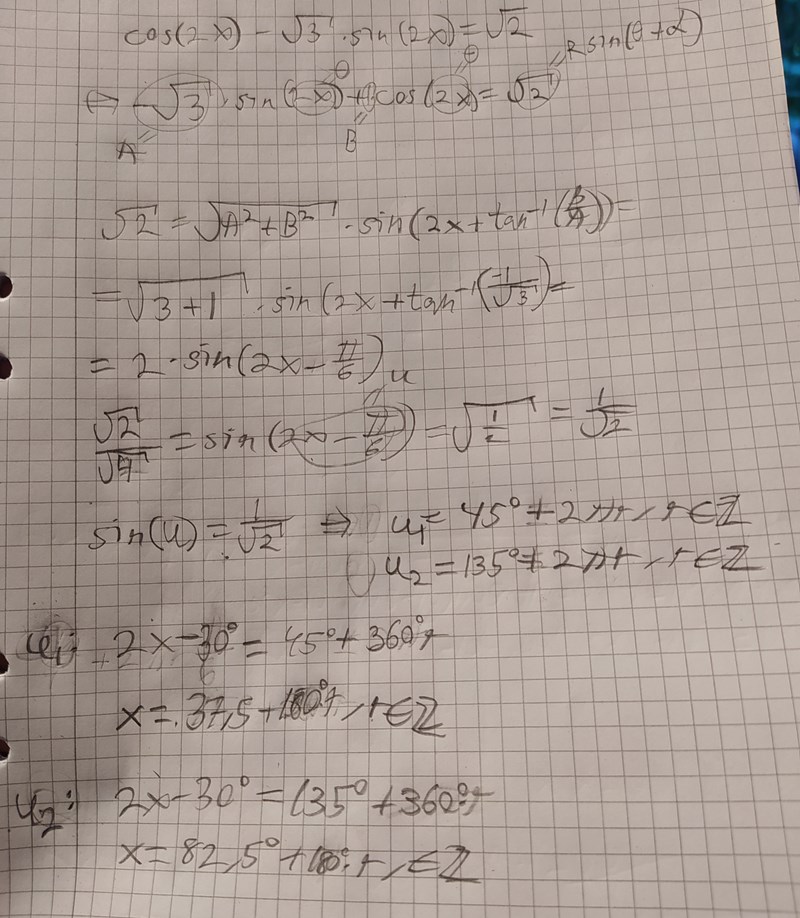 cos(2x) - √3 · sin(2x) = √2
θ θ = R sin(θ + α)
⇔ -√3 · sin(2x) + cos(2x) = √2
A B
√2 = √(A² + B²) · sin(2x + tan⁻¹(B/A)) =
= √(3 + 1) · sin(2x + tan⁻¹(-1/√3) =
= 2 · sin(2x - π/6)
u
√2/√4 = sin(2x - π/6) = √(1/2) = 1/√2
sin(u) = 1/√2 ⇒ u₁ = 45° + 2πr, r ∈ Z
u₂ = 135° + 2πr, r ∈ Z
u₁: 2x - 30° = 45° + 360°r
x = 37,5 + 180°r, r ∈ Z
u₂: 2x - 30° = 135° + 360°r
x = 82,5° + 180°r, ∈ Z